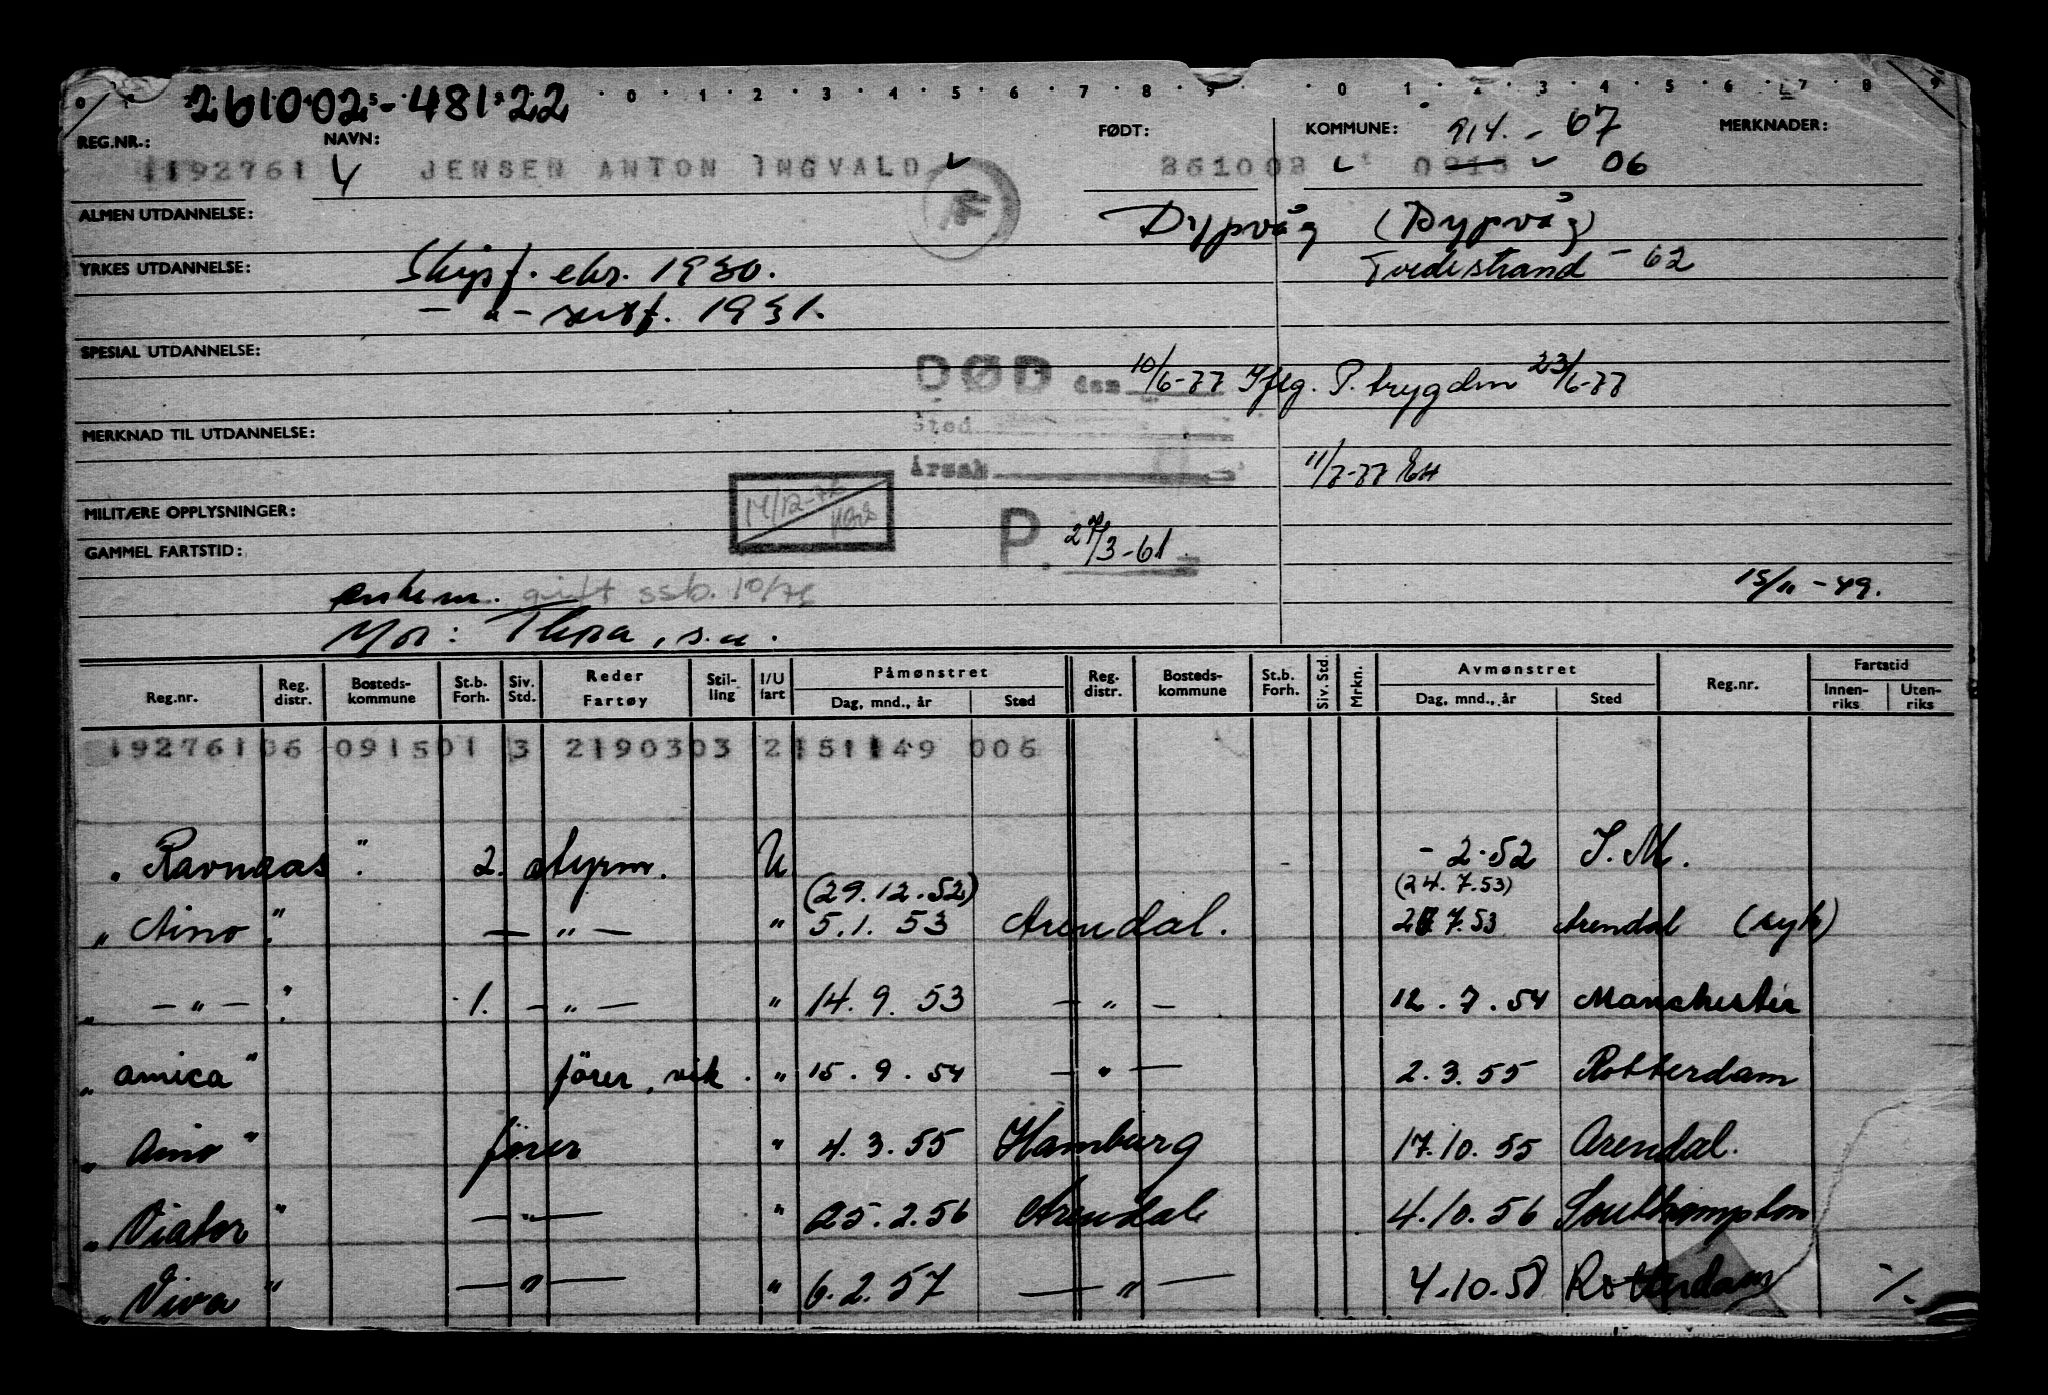 261002 - 48122
0 1 2 3 4 5 6 7 8 9 0 1 2 3 4 5 6 7 8 9
REG.NR.: NAVN: FØDT: KOMMUNE: 914. - 67 MERKNADER:
192761 JENSEN ANTON INGVALD 261002 0915 06
ALMEN UTDANNELSE: Dypvåg (Dypvåg)
YRKES UTDANNELSE: Skipsf. eks. 1930. Tvedestrand - 62
- " - sertf. 1931.
SPESIAL UTDANNELSE:
DØD den 10/6-77 Iflg. P. trygden 23/6-77
Sted
MERKNAD TIL UTDANNELSE:
Årsak 11/7-77 EH
14/12-76
MILITÆRE OPPLYSNINGER:
P. 27/3-61
GAMMEL FARTSTID:
enkem. gift ssb. 10/76 15/11-49.
Mor: Thora, s.a.
Reg.nr. Reg. distr. Bosteds-kommune St.b. Forh. Siv. Std. Reder Fartøy Stil-ling I/U fart Påmønstret Dag, mnd., år Sted Reg. distr. Bosteds-kommune St.b. Forh. Siv. Std. Mrkn. Avmønstret Dag, mnd., år Sted Reg.nr. Fartstid Innen-riks Uten-riks
192761 06 0915 01 3 2190303 2 151149 006
"Ravnaas" 2. styrm. U - 2.52 I.M.
(29.12.52) (24.7.53)
"Aino" — " — " 5.1.53 Arendal. 27.7.53 Arendal (syk)
" — " — " 1. — " — " 14.9.53 — " — 12.7.54 Manchester
"Amica" fører, vik. " 15.9.54 — " — 2.3.55 Rotterdam
"Aino" fører " 4.3.55 Hamburg 17.10.55 Arendal.
"Viator" — " — " 25.2.56 Arendal 4.10.56 Southampton
"Viva" — " — " 6.2.57 — " — 4.10.58 Rotterdam ./.